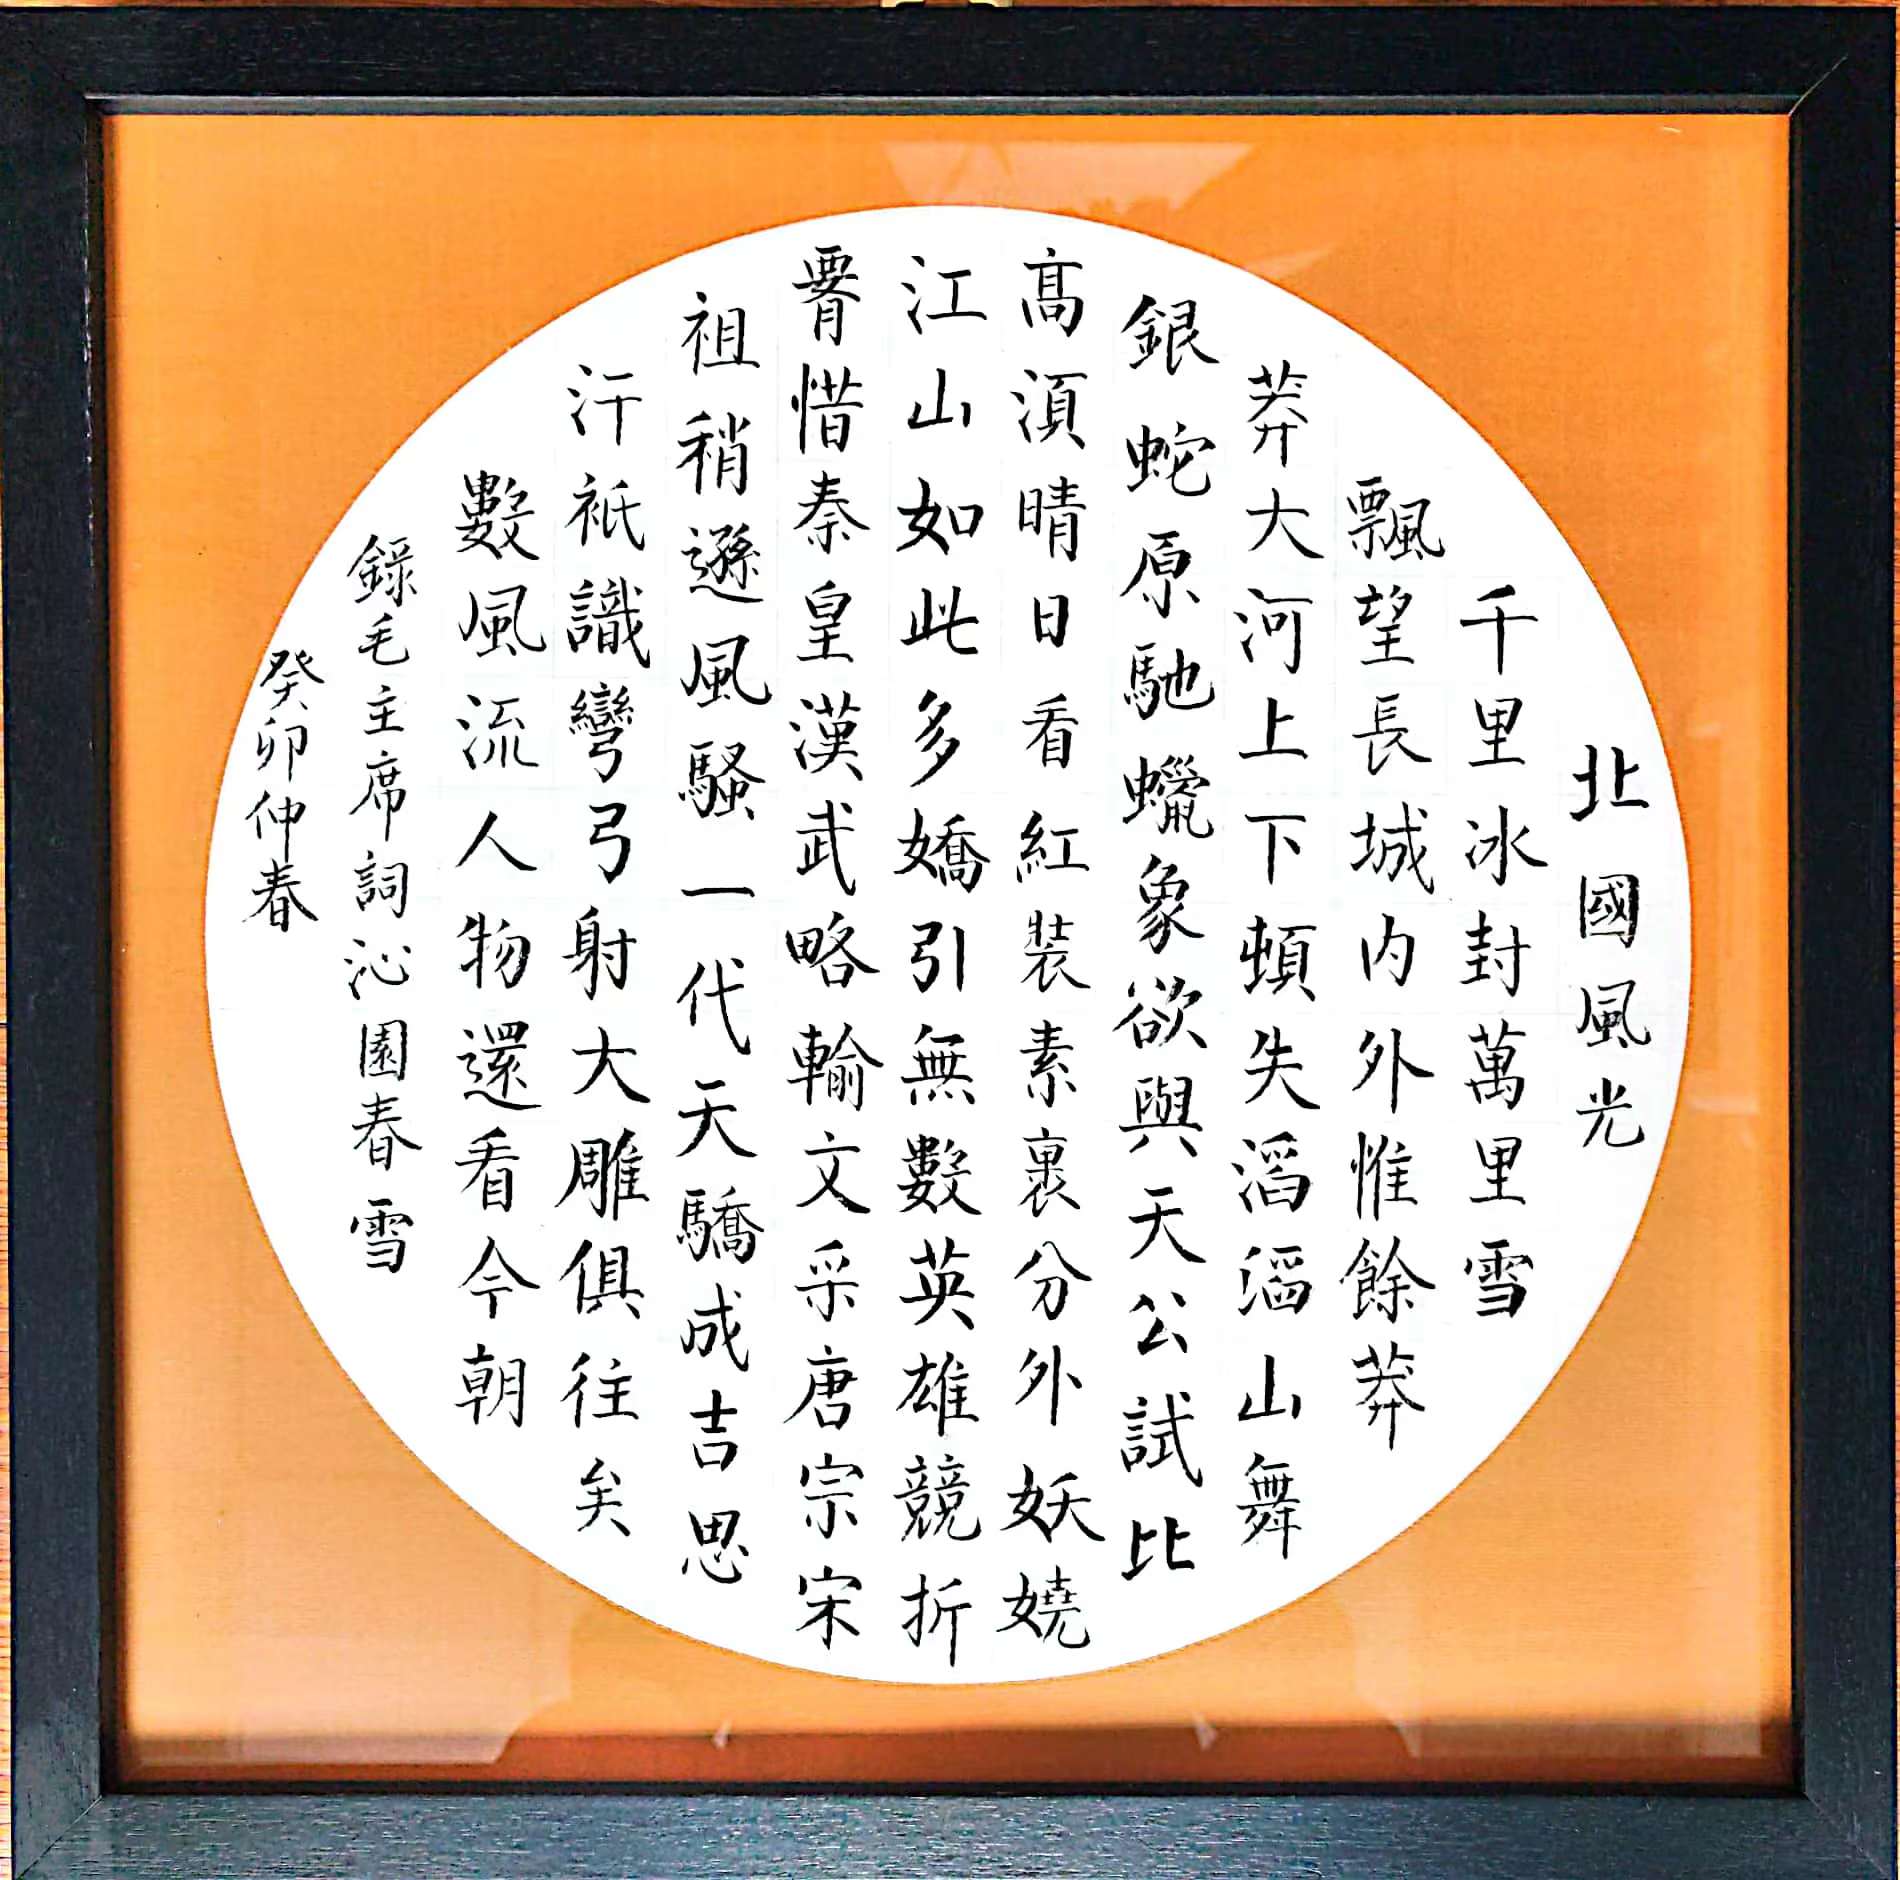 北國風光
千里冰封萬里雪
飄望長城内外惟餘莽
莽大河上下頓失滔滔山舞
銀蛇原馳蠟象欲與天公試比
高須晴日看紅裝素裹分外妖嬈
江山如此多嬌引無數英雄競折
腰惜秦皇漢武略輸文采唐宗宋
祖稍遜風騷一代天驕成吉思
汗衹識彎弓射大雕俱往矣
數風流人物還看今朝
錄毛主席詞沁園春雪
癸卯仲春